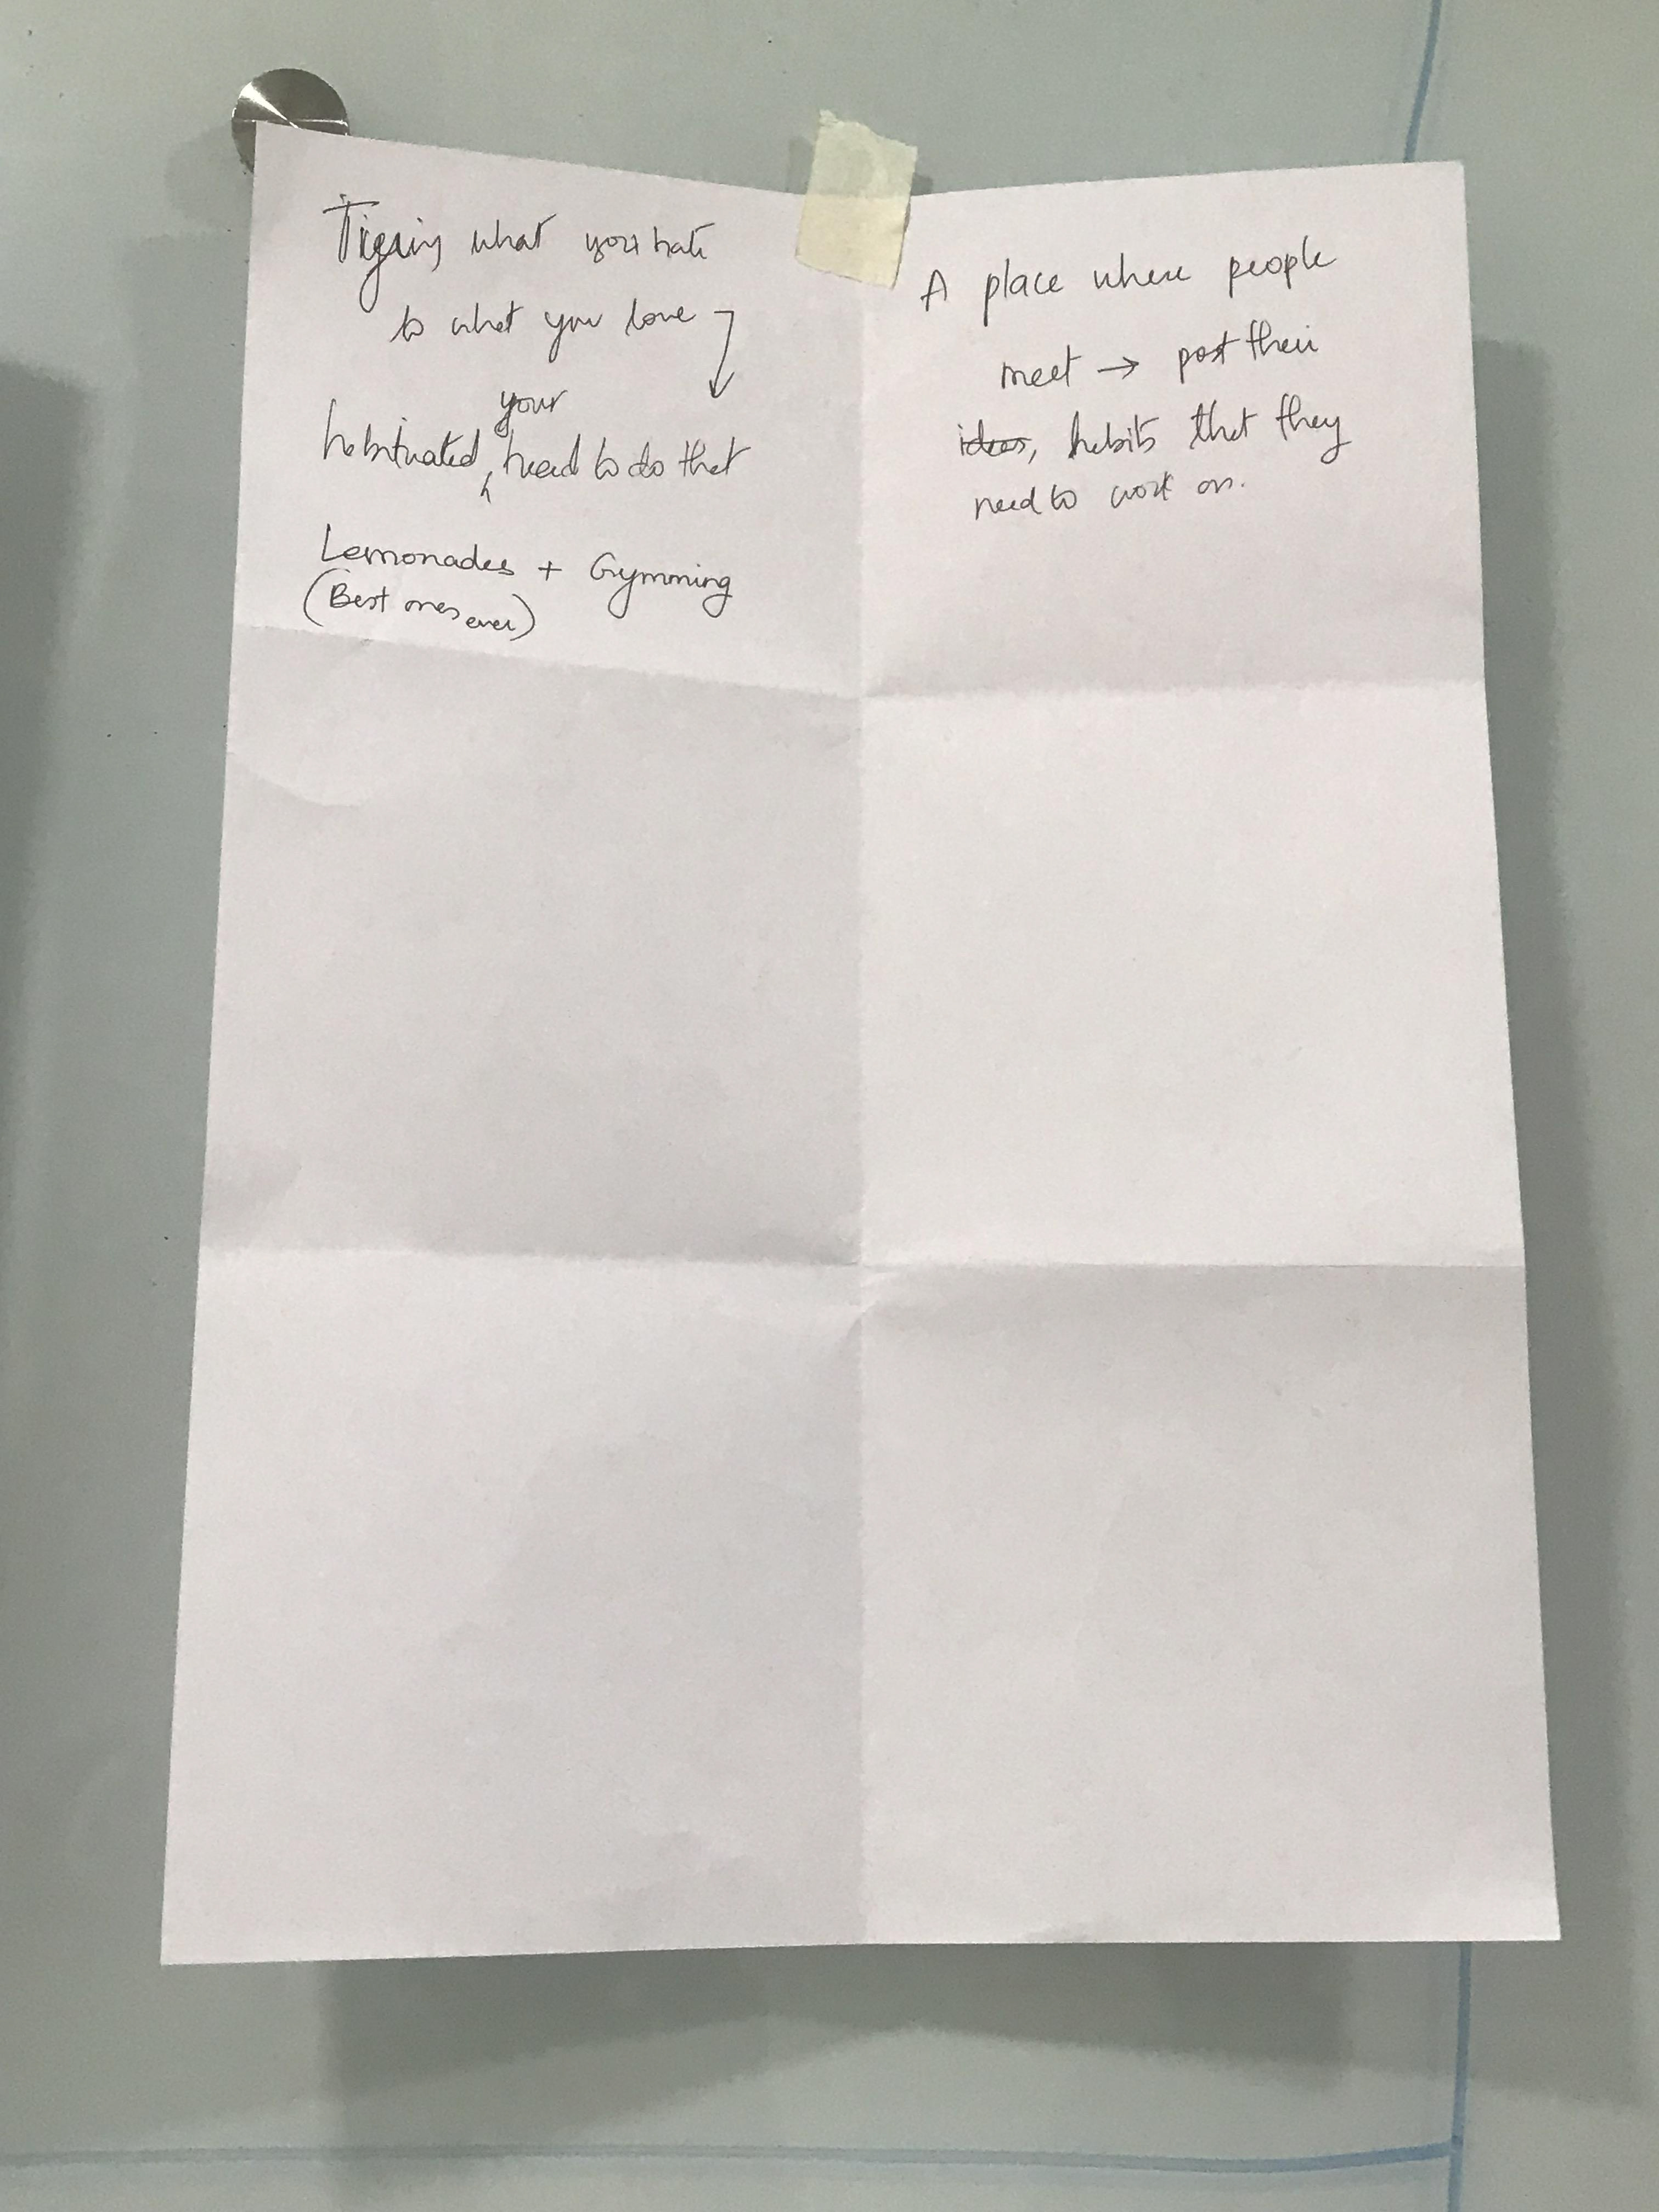 what you hate
to what you love
your
habituated, need to do that
Lemonades + Gymming
(Best ones ever)
A place where people
meet → post their
ideas, habits that they
need to work on.